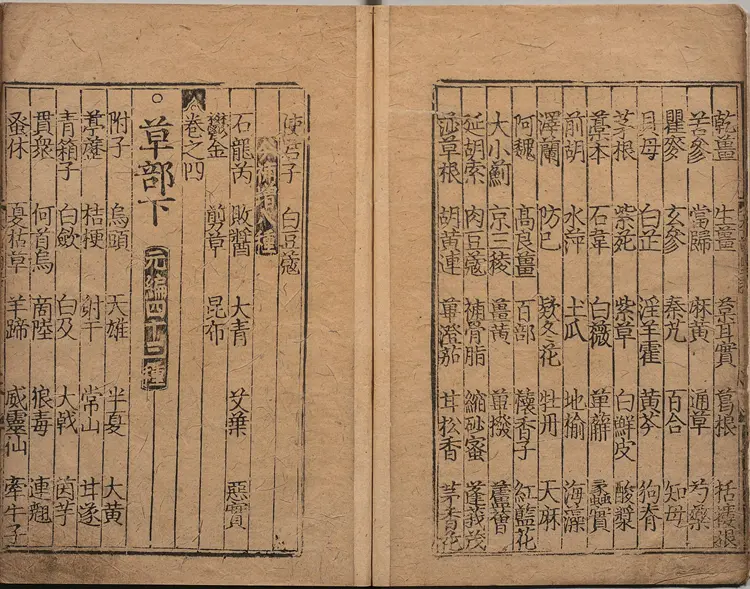 乾薑 生薑 草豆實 葛根 栝樓根
苦參 當歸 麻黃 通草 芍藥
瞿麥 玄參 秦艽 百合 知母
貝母 白芷 淫羊霍 黃芩 狗脊
茅根 紫死 紫草 白鮮皮 酸漿
藁本 石韋 白薇 萆薢 蠡實
前胡 水萍 土瓜 地榆 海藻
澤蘭 防己 欵冬花 牡丹 天麻
阿魏 高良薑 百部 懷香子 紅藍花
大小薊 京三稜 薑黃 蓽撥 蘆薈
延胡索 肉豆蔻 補骨脂 縮砂蜜 蓬莪茂
莎草根 胡黃連 蓽澄茄 甘松香 茅香花
使君子 白豆蔻
石龍芮 敗醬 大青 艾葉 惡實
鬱金 剪草 昆布
卷之四
草部下 元編四十二種
附子 烏頭 天雄 半夏 大黃
葶藶 桔梗 射干 常山 甘遂
青箱子 白斂 白及 大戟 茵芋
貫衆 何首烏 商陸 狼毒 連翹
蚤休 夏枯草 羊蹄 威靈仙 牽牛子